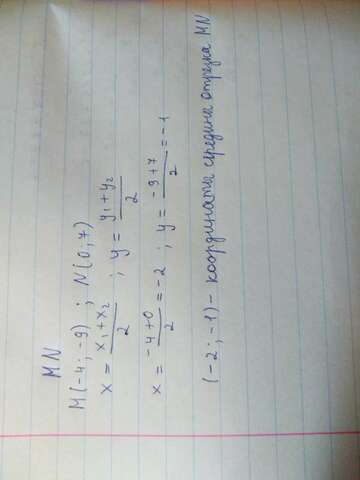 MN
M(-4; -9) ; N(0; 7)
x = (x₁+x₂)/2 ; y = (y₁+y₂)/2
x = (-4+0)/2 = -2 ; y = (-9+7)/2 = -1
(-2; -1) - координаты середина отрезка MN